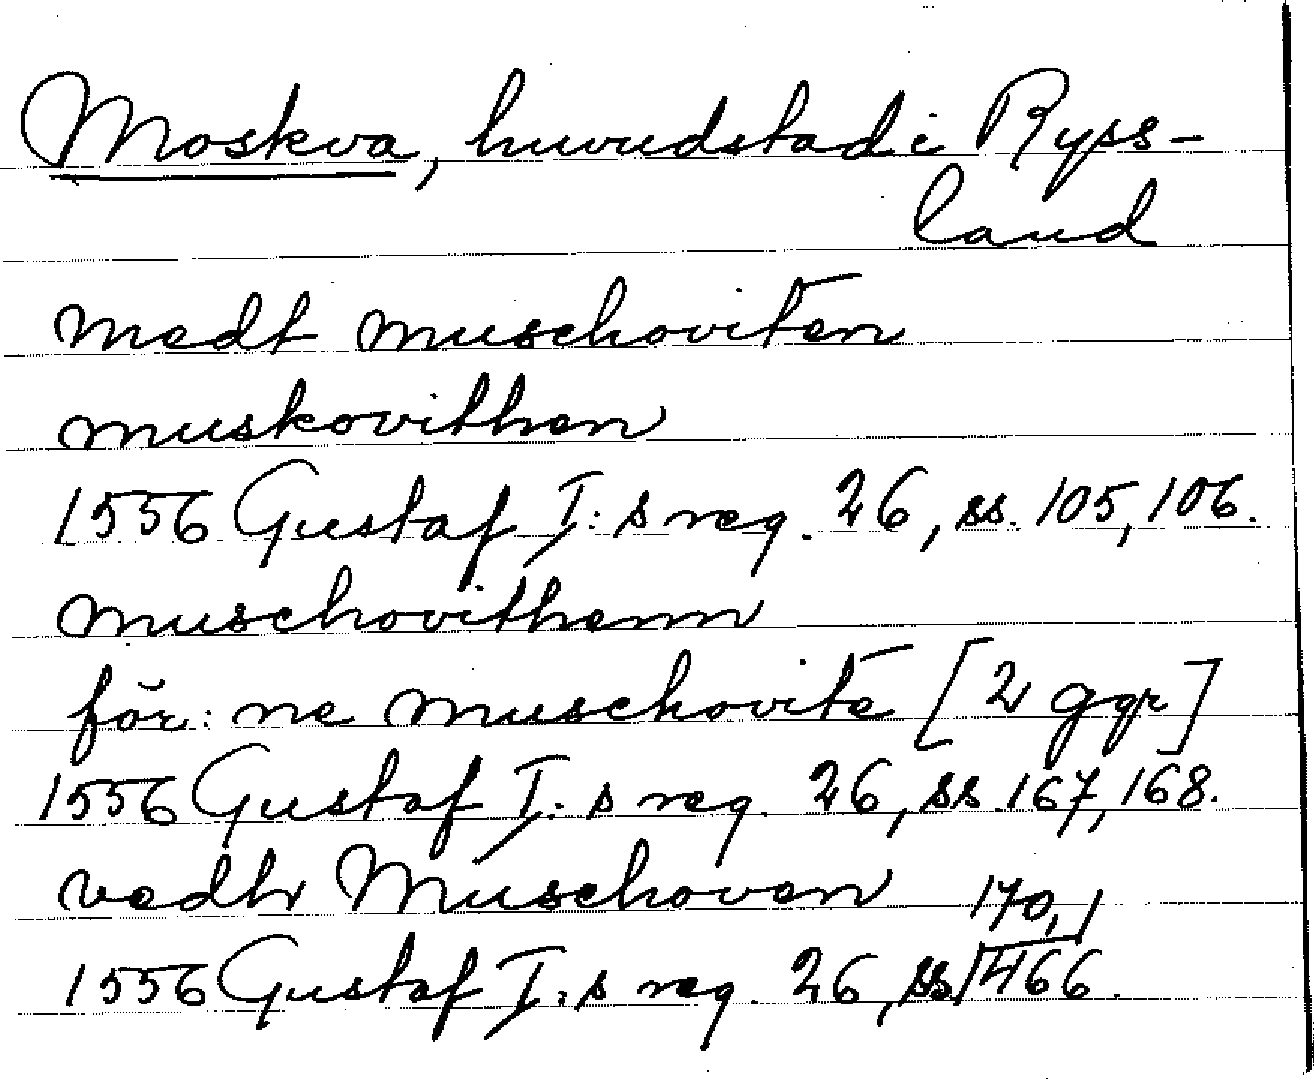 Moskva, huvudstad i Ryss-
land
medt muschoviten
muskovithen
1556 Gustaf I:s reg. 26, ss. 105, 106.
muschovithenn
för: ne muschovite [2 ggr]
1556 Gustaf I:s reg. 26, ss 167, 168.
vedh Muschoven
170,
1556 Gustaf I:s reg. 26, ss 466.